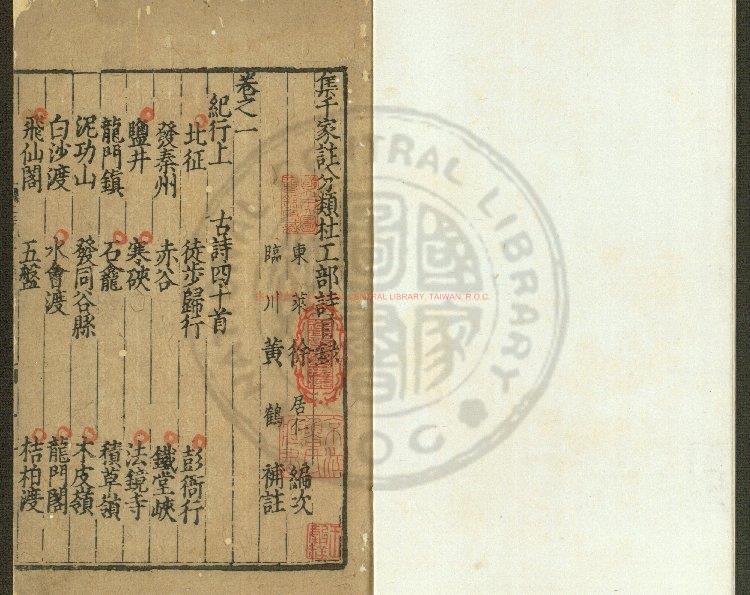 集千家註分類杜工部詩目錄
東萊徐居仁編次
臨川黃鶴補註
卷之一
紀行上 古詩四十首
北征 徒步歸行 彭衙行
發秦州 赤谷 鐵堂峽
鹽井 寒硤 法鏡寺
龍門鎮 石龕 積草嶺
泥功山 發同谷縣 木皮嶺
白沙渡 水會渡 龍門閣
飛仙閣 五盤 桔柏渡
CENTRAL LIBRARY, TAIWAN, R.O.C.
NATIONAL CENTRAL LIBRARY